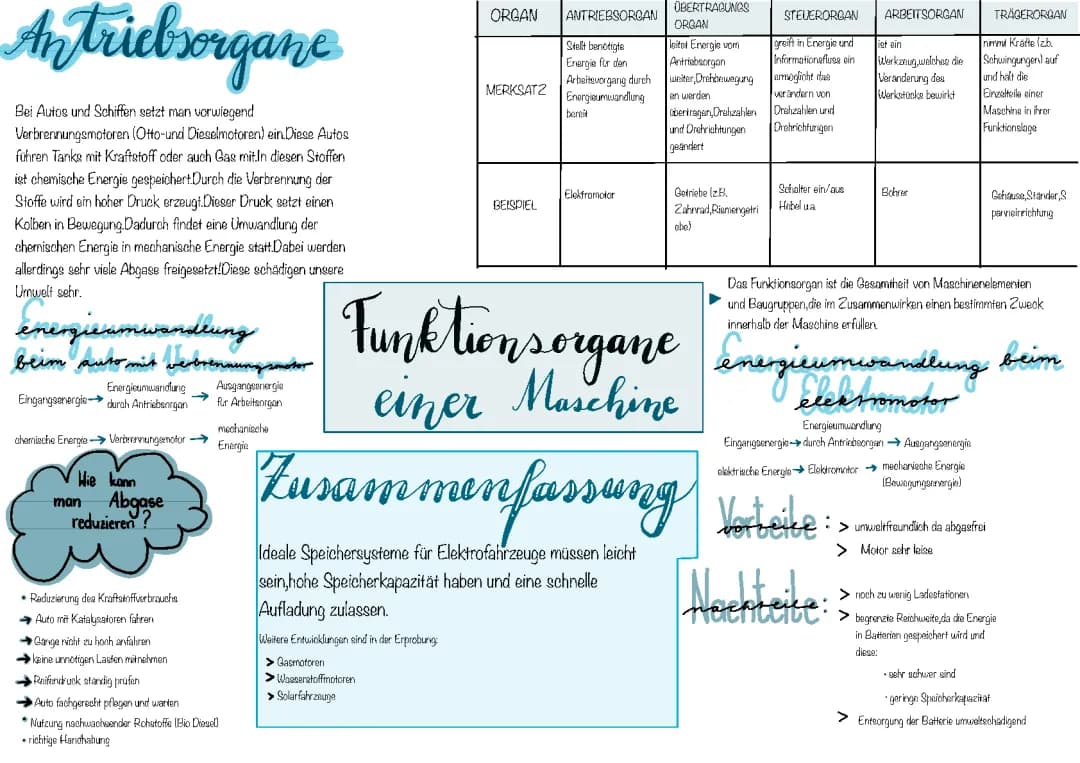 Antriebsorgane
Bei Autos und Schiffen setzt man vorwiegend
Verbrennungsmotoren (Otto-und Dieselmotoren) ein.Diese Autos
führen Tanks mit Kraftstoff oder auch Gas mit.In diesen Stoffen
ist chemische Energie gespeichert.Durch die Verbrennung der
Stoffe wird ein hoher Druck erzeugt.Dieser Druck setzt einen
Kolben in Bewegung.Dadurch findet eine Umwandlung der
chemischen Energie in mechanische Energie statt.Dabei werden
allerdings sehr viele Abgase freigesetzt!Diese schädigen unsere
Umwelt sehr.
Energieumwandlung
beim Auto mit Verbrennungsmotor
Eingangsenergie → Energieumwandlung durch Antriebsorgan → Ausgangsenergie für Arbeitsorgan
chemische Energie → Verbrennungsmotor → mechanische Energie
Wie kann
man Abgase
reduzieren ?
• Reduzierung des Kraftstoffverbrauchs
→ Auto mit Katalysatoren fahren
→ Gänge nicht zu hoch anfahren
→ keine unnötigen Lasten mitnehmen
→ Reifendruck ständig prüfen
→ Auto fachgerecht pflegen und warten
• Nutzung nachwachsender Rohstoffe (Bio Diesel)
• richtige Handhabung
ORGAN ANTRIEBSORGAN ÜBERTRAGUNGS ORGAN STEUERORGAN ARBEITSORGAN TRÄGERORGAN
MERKSATZ
Stellt benötigte
Energie für den
Arbeitsvorgang durch
Energieumwandlung
bereit
leitet Energie vom
Antriebsorgan
weiter,Drehbewegung
en werden
übertragen,Drehzahlen
und Drehrichtungen
geändert
greift in Energie und
Informationsfluss ein
ermöglicht das
verändern von
Drehzahlen und
Drehrichtungen
ist ein
Werkzeug,welches die
Veränderung des
Werkstücks bewirkt
nimmt Kräfte (z.b.
Schwingungen) auf
und hält die
Einzelteile einer
Maschine in ihrer
Funktionslage
BEISPIEL
Elektromotor
Getriebe (z.B.
Zahnrad,Riemengetri
ebe)
Schalter ein/aus
Hebel u.a.
Bohrer
Gehäuse,Ständer,S
pannvorrichtung
Funktionsorgane
einer Maschine
Das Funktionsorgan ist die Gesamtheit von Maschinenelementen
und Baugruppen,die im Zusammenwirken einen bestimmten Zweck
innerhalb der Maschine erfüllen.
Zusammenfassung
Ideale Speichersysteme für Elektrofahrzeuge müssen leicht
sein,hohe Speicherkapazität haben und eine schnelle
Aufladung zulassen.
Weitere Entwicklungen sind in der Erprobung:
> Gasmotoren
> Wasserstoffmotoren
> Solarfahrzeuge
Energieumwandlung beim
Elektromotor
Eingangsenergie → Energieumwandlung durch Antriebsorgan → Ausgangsenergie
elektrische Energie → Elektromotor → mechanische Energie
(Bewegungsenergie)
Vorteile :
> umweltfreundlich da abgasfrei
> Motor sehr leise
Nachteile:
> noch zu wenig Ladestationen
> begrenzte Reichweite,da die Energie
in Batterien gespeichert wird und
diese:
• sehr schwer sind
• geringe Speicherkapazität
> Entsorgung der Batterie umweltschädigend